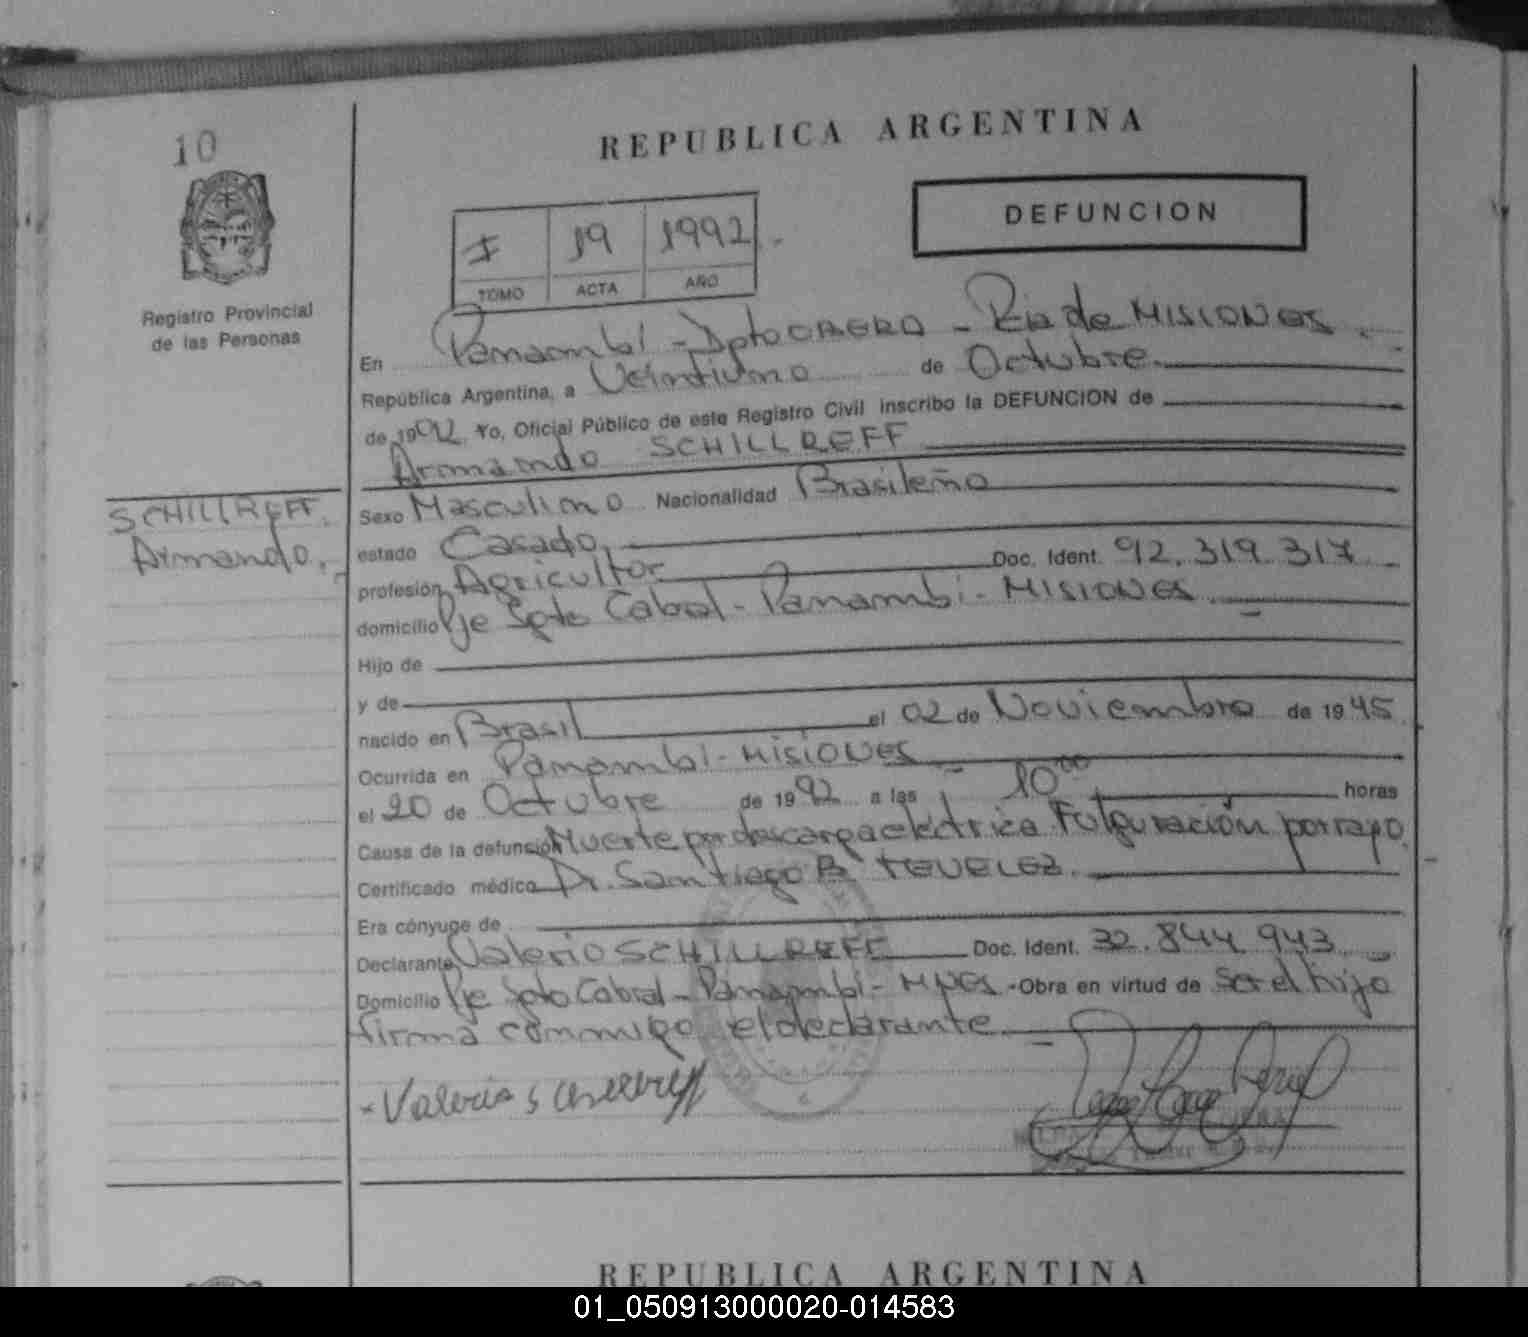 10
REPUBLICA ARGENTINA
Registro Provincial
de las Personas
I 19 1992
TOMO ACTA AÑO
DEFUNCION
En Panambí - Dpto OBERA - Pcia de MISIONES
República Argentina, a Veintiuno de Octubre
de 1992 Yo, Oficial Público de este Registro Civil inscribo la DEFUNCION de
Armando SCHILLREFF
SCHILLREFF
Armando
Sexo Masculino Nacionalidad Brasileño
estado Casado
profesión Agricultor Doc. Ident. 92.319.317
domicilio Pje Sgto Cabral - Panambí - MISIONES
Hijo de
y de
nacido en Brasil el 02 de Noviembre de 1945
Ocurrida en Panambí - MISIONES
el 20 de Octubre de 1992 a las 10 00 horas
Causa de la defunción Muerte por descarga electrica Fulguración por rayo.
Certificado médico Dr. Santiago B.
Era cónyuge de
Declarante Valerio SCHILLREFF Doc. Ident. 32.844.943
Domicilio Pje Sgto Cabral - Panambí - MNES - Obra en virtud de Ser el hijo
firma conmigo el declarante
REPUBLICA ARGENTINA
01_050913000020-014583